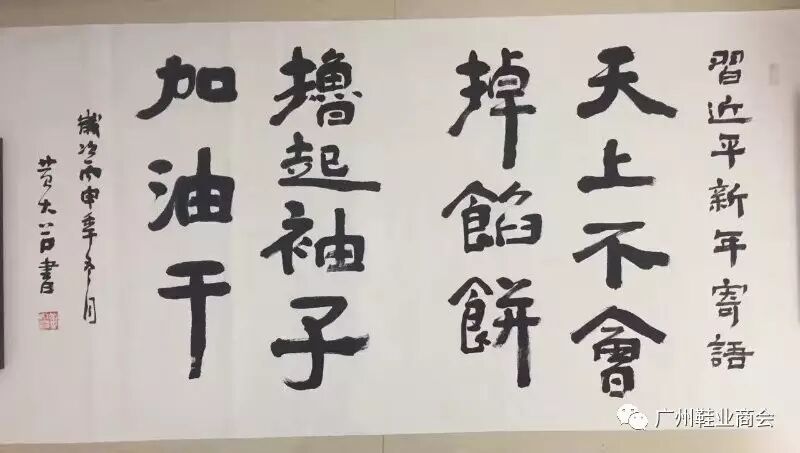 習近平新年寄語
天上不會
掉餡餅
擼起袖子
加油干
歲次丙申年冬月
黄大同書
广州鞋业商会